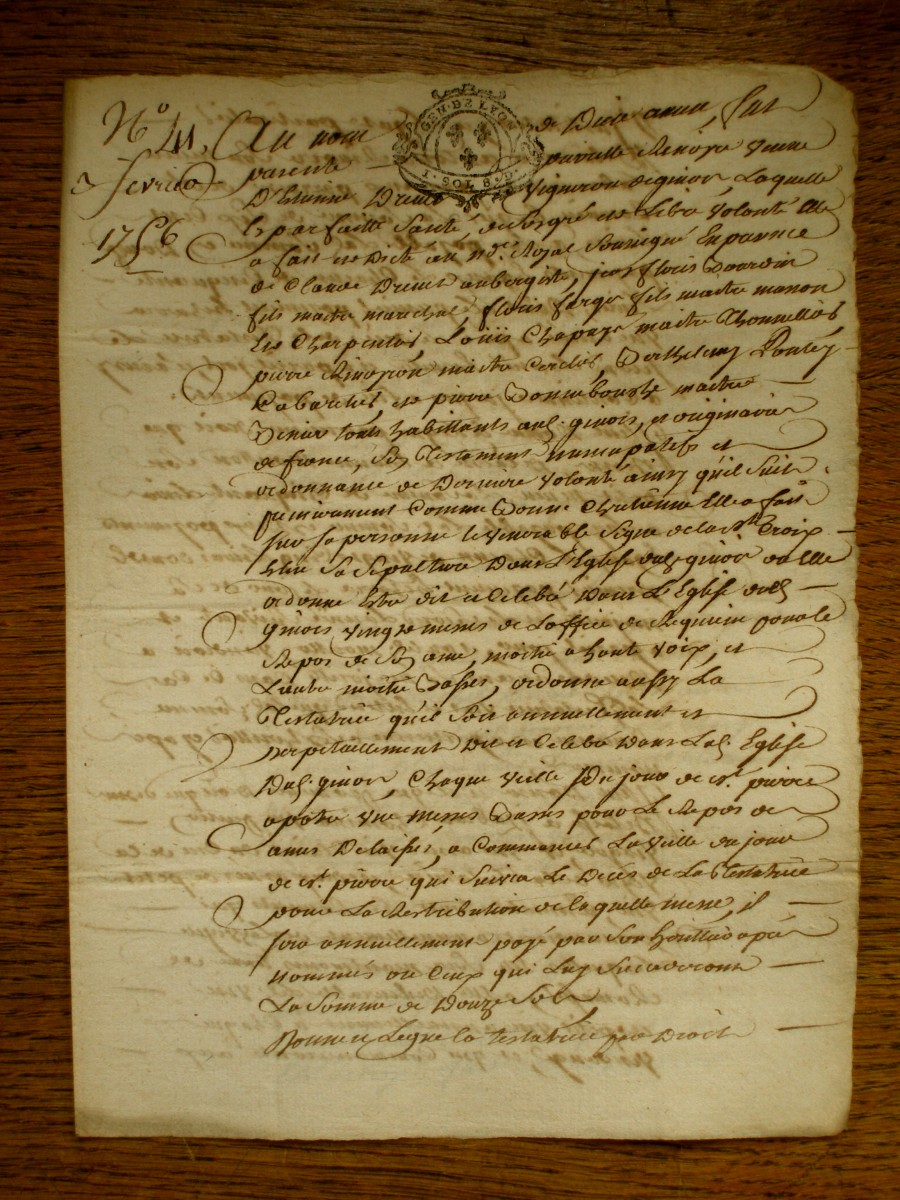 N.o 41,
3 fevrier
1756
GEN. DE LYON
1. SOL 8 D.
Au nom de Dieu amen, fut
presente pierrette Rinoyre veuve
D'Etienne Dreuet vigneron de ginois, Laquelle
En parfaitte Santé, de Son gré et Libre volonté Elle
a fait et Dicté au no.re Royal Soussigné En presence
de Claude Dreuet aubergiste, jean floris
fils maitre marechal, floris farge fils maitre masson
Et Charpentier, Loüis Chapuy maitre Thonnellier
pierre maitre Cerclier, Berthelemy
Cabaretier, et pierre maitre
tous habittants aud. ginois, et originaires
de france, Son Testament nuncupatif et
ordonnance de Derniere volonté ainsy qu'il Suit
premierement Comme Bonne Chretienne Elle a fait
Sur Sa personne le venerable Signe de la Ste. Croix
Elu Sa Sepulture Dans L'Eglise dud. ginois ou Elle
ordonne Estre dit et Celebré Dans L'Eglise dud.
ginois vingt messes de L'office de Requiem pour le
Repos de Son ame, moitié a haute voix, et
L'autre moitié Basses, ordonne aussy La
Testatrice qu'il Soit annuellement et
perpetuellement Dit et Celebré Dans Lad. Eglise
Dud. ginois, Chaque veille Du jour de St. pierre
apotre une messe Basse pour Le Repos des
ames Delaissés, a Commencer La veille du jour
de St. pierre qui Suivra Le Décés de La Testatrice
pour La Retribution de laquelle messe, il
Sera annuellement payé par Son heritier apres
nommés ou Ceux qui Luy Succederont
La Somme de Douze Sols
Donne et Legue la testatrice par Droit